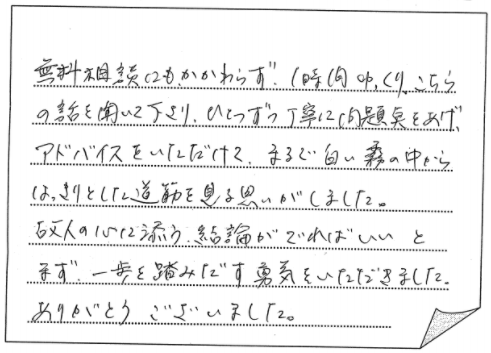 無料相談にもかかわらず、1時間ゆっくり、こちら
の話を聞いて下さり、ひとつずつ丁寧に問題点をあげ、
アドバイスをいただけて、まるで白い霧の中から
はっきりとした道筋を見る思いがしました。
故人の心に添う結論がでればいいと
まず、一歩を踏みだす勇気をいただきました。
ありがとうございました。